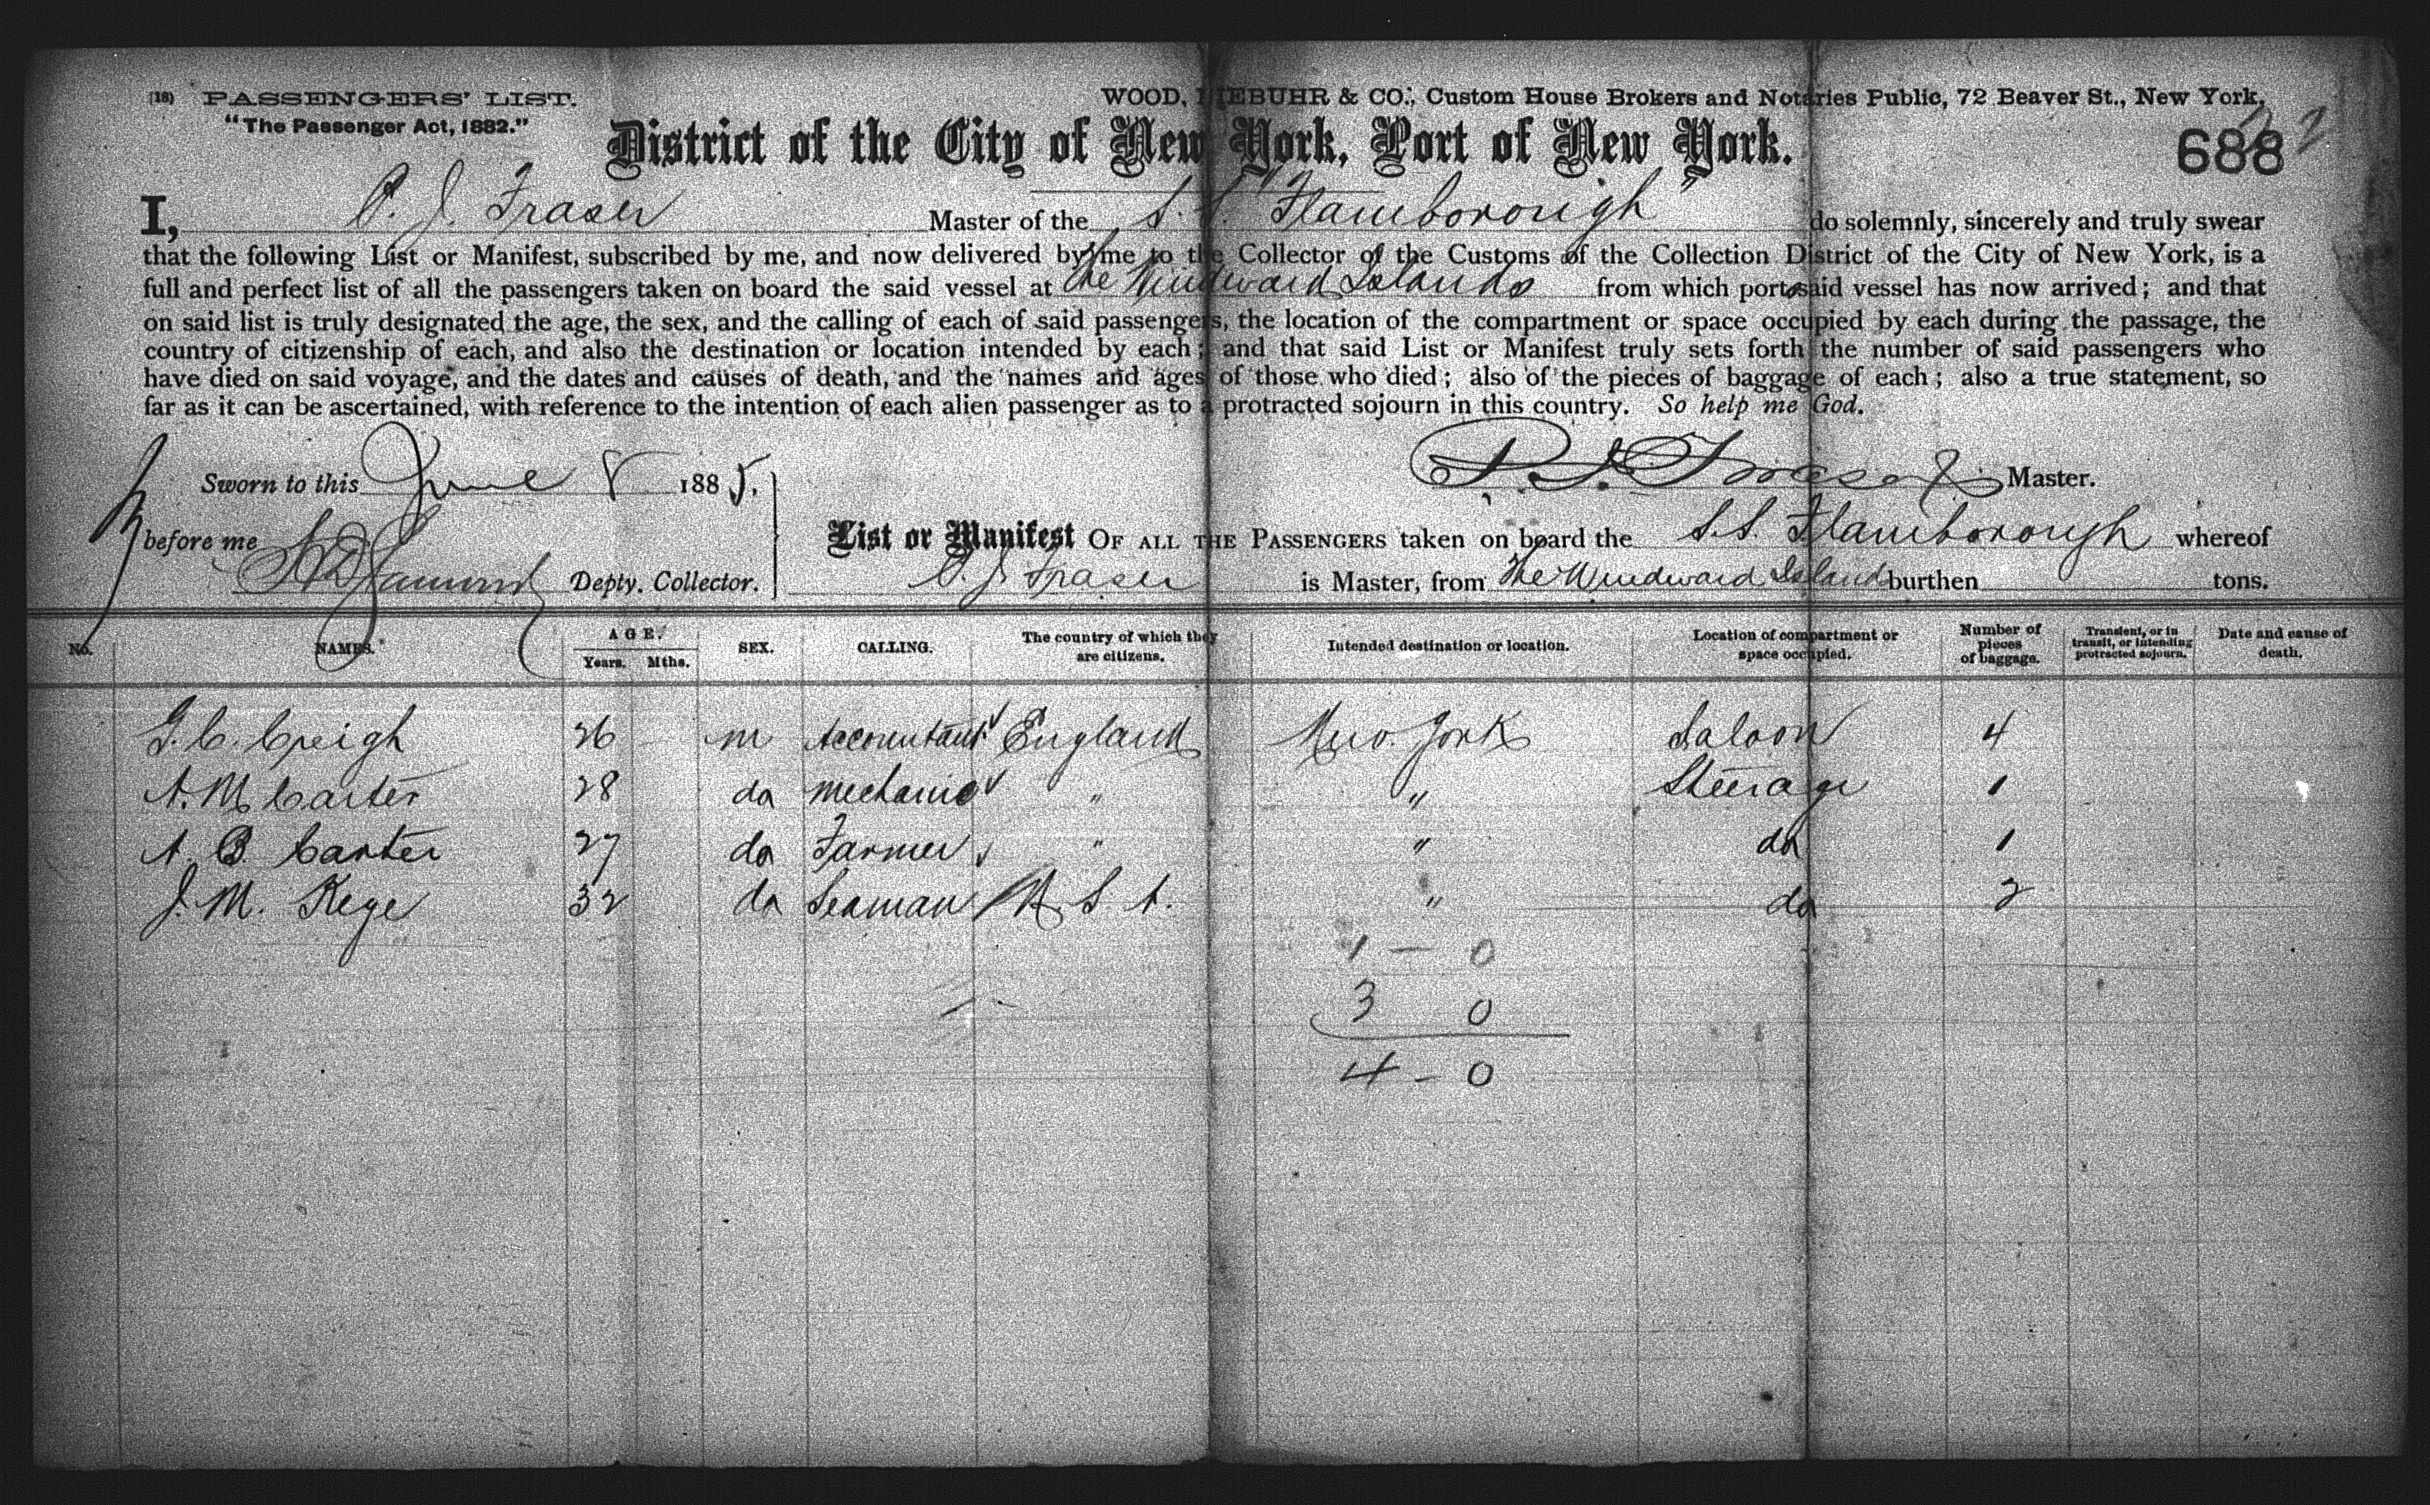 (18) PASSENGERS' LIST.
"The Passenger Act, 1882."
WOOD, NIEBUHR & CO., Custom House Brokers and Notaries Public, 72 Beaver St., New York.
District of the City of New York, Port of New York.
688
I, P. J. Fraser Master of the S. S. "Flamborough" do solemnly, sincerely and truly swear
that the following List or Manifest, subscribed by me, and now delivered by me to the Collector of the Customs of the Collection District of the City of New York, is a
full and perfect list of all the passengers taken on board the said vessel at the Windward Islands from which ports said vessel has now arrived; and that
on said list is truly designated the age, the sex, and the calling of each of said passengers, the location of the compartment or space occupied by each during the passage, the
country of citizenship of each, and also the destination or location intended by each; and that said List or Manifest truly sets forth the number of said passengers who
have died on said voyage, and the dates and causes of death, and the names and ages of those who died; also of the pieces of baggage of each; also a true statement, so
far as it can be ascertained, with reference to the intention of each alien passenger as to a protracted sojourn in this country. So help me God.
Sworn to this June 8 1885.
P. J. Fraser Master.
before me Depty. Collector.
List or Manifest OF ALL THE PASSENGERS taken on board the S.S. Flamborough whereof
P. J. Fraser is Master, from The Windward Island burthen tons.
No. NAMES. AGE. Years. Mths. SEX. CALLING. The country of which they are citizens. Intended destination or location. Location of compartment or space occupied. Number of pieces of baggage. Transient, or in transit, or intending protracted sojourn. Date and cause of death.
G. C. Creigh 26 m Accountant England New York Saloon 4
A. M Carter 28 do mechanic " " Steerage 1
A. B. Carter 27 do Farmer " " do 1
J. M. Keye 32 do Seaman U S A. " do 2
1 - 0
3 0
4 - 0